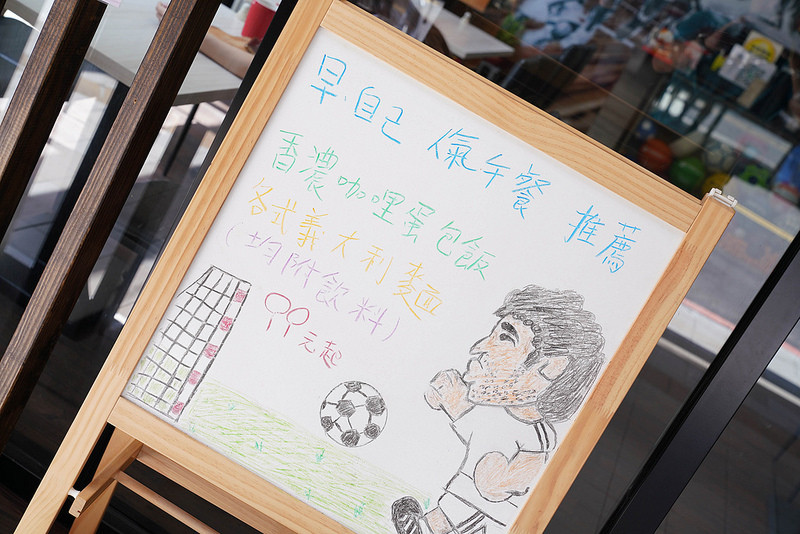 早.自己 人氣午餐 推薦
香濃咖哩蛋包飯
各式義大利麵
(均附飲料)
99元起